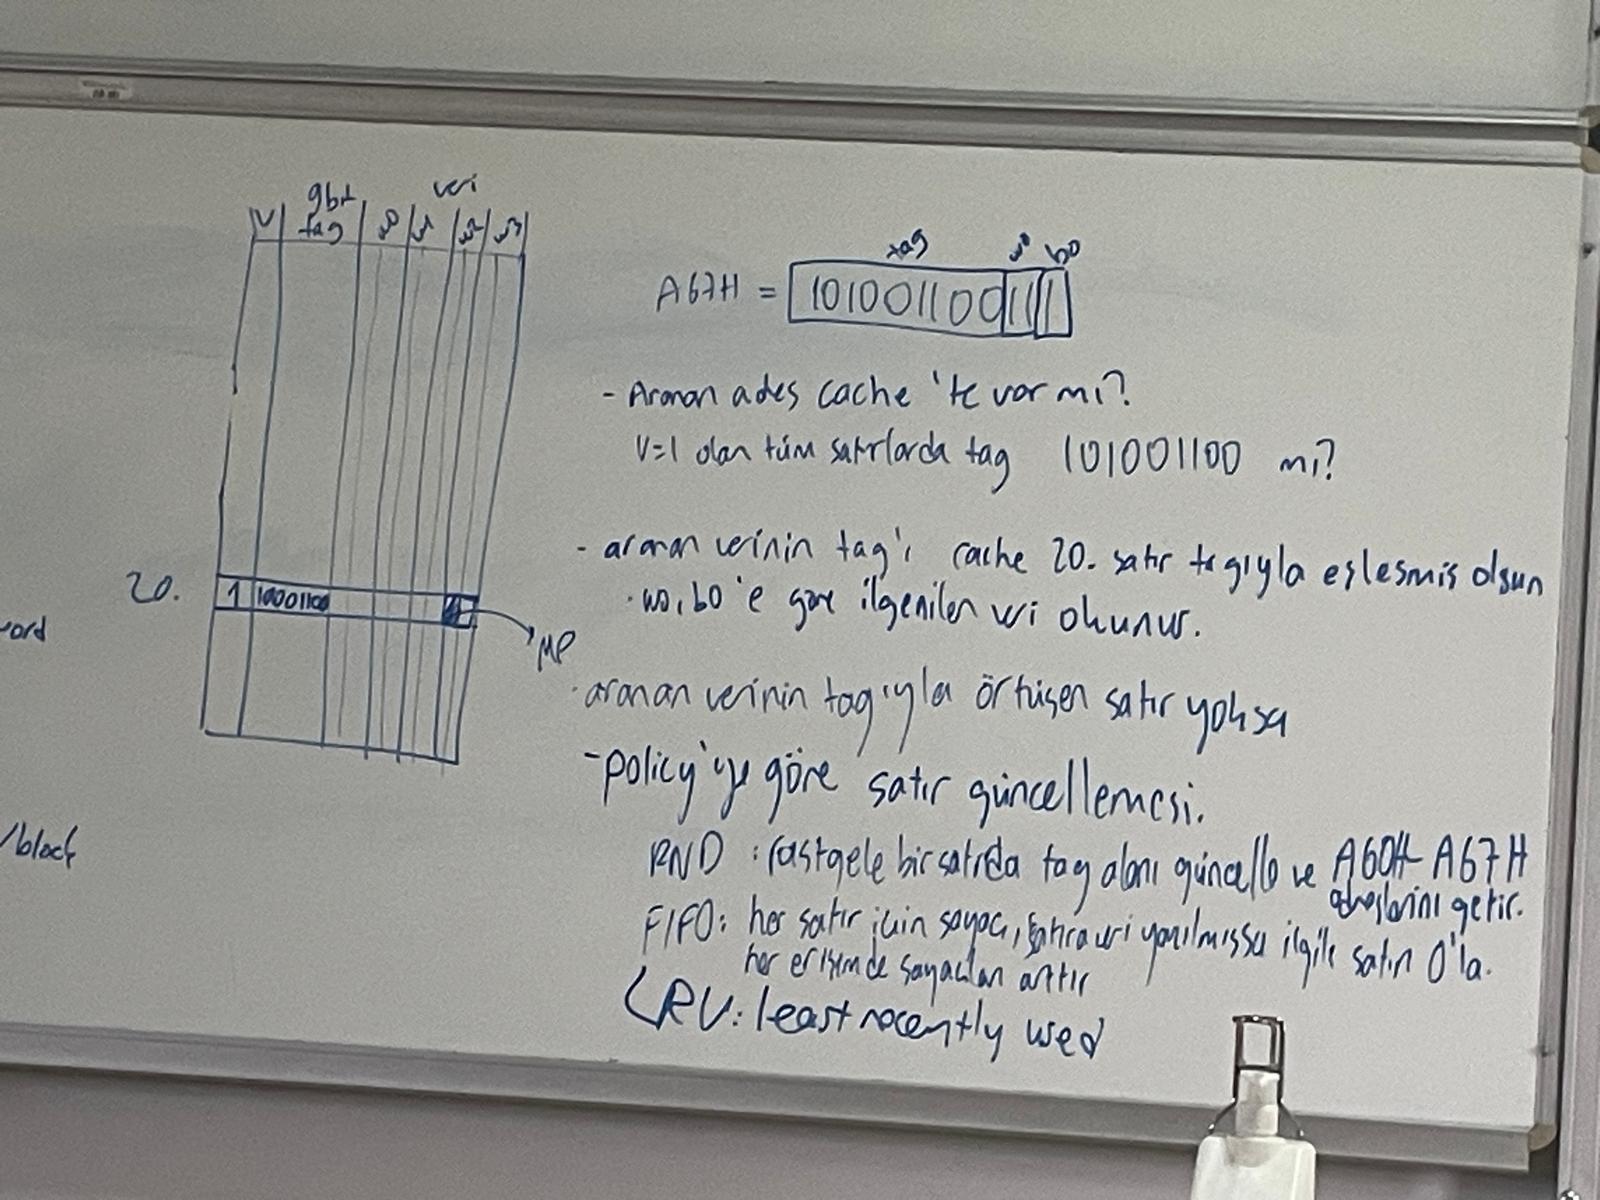 9bit veri
V tag w0 w1 w2 w3
20. 1 10001100
MP
word
/block
tag w0 b0
A67H = 101001100 11 1
- Aranan ades cache 'te var mı?
V=1 olan tüm satırlarda tag 101001100 mı?
- aranan verinin tag'ı cache 20. satır tagıyla eşlesmis olsun
· w0, b0 'e göre ilgenilen veri okunur.
· aranan verinin tag'ıyla örtüşen satır yoksa
- policy'ye göre satır güncellemesi.
RND : rastgele bir satırda tag alanı güncelle ve A60H-A67H
adreslerini getir.
FIFO: her satır için sayacı, satıra veri yazılmışsa ilgili satırı 0'la.
her erişimde sayaçları arttır
LRU: least recently used